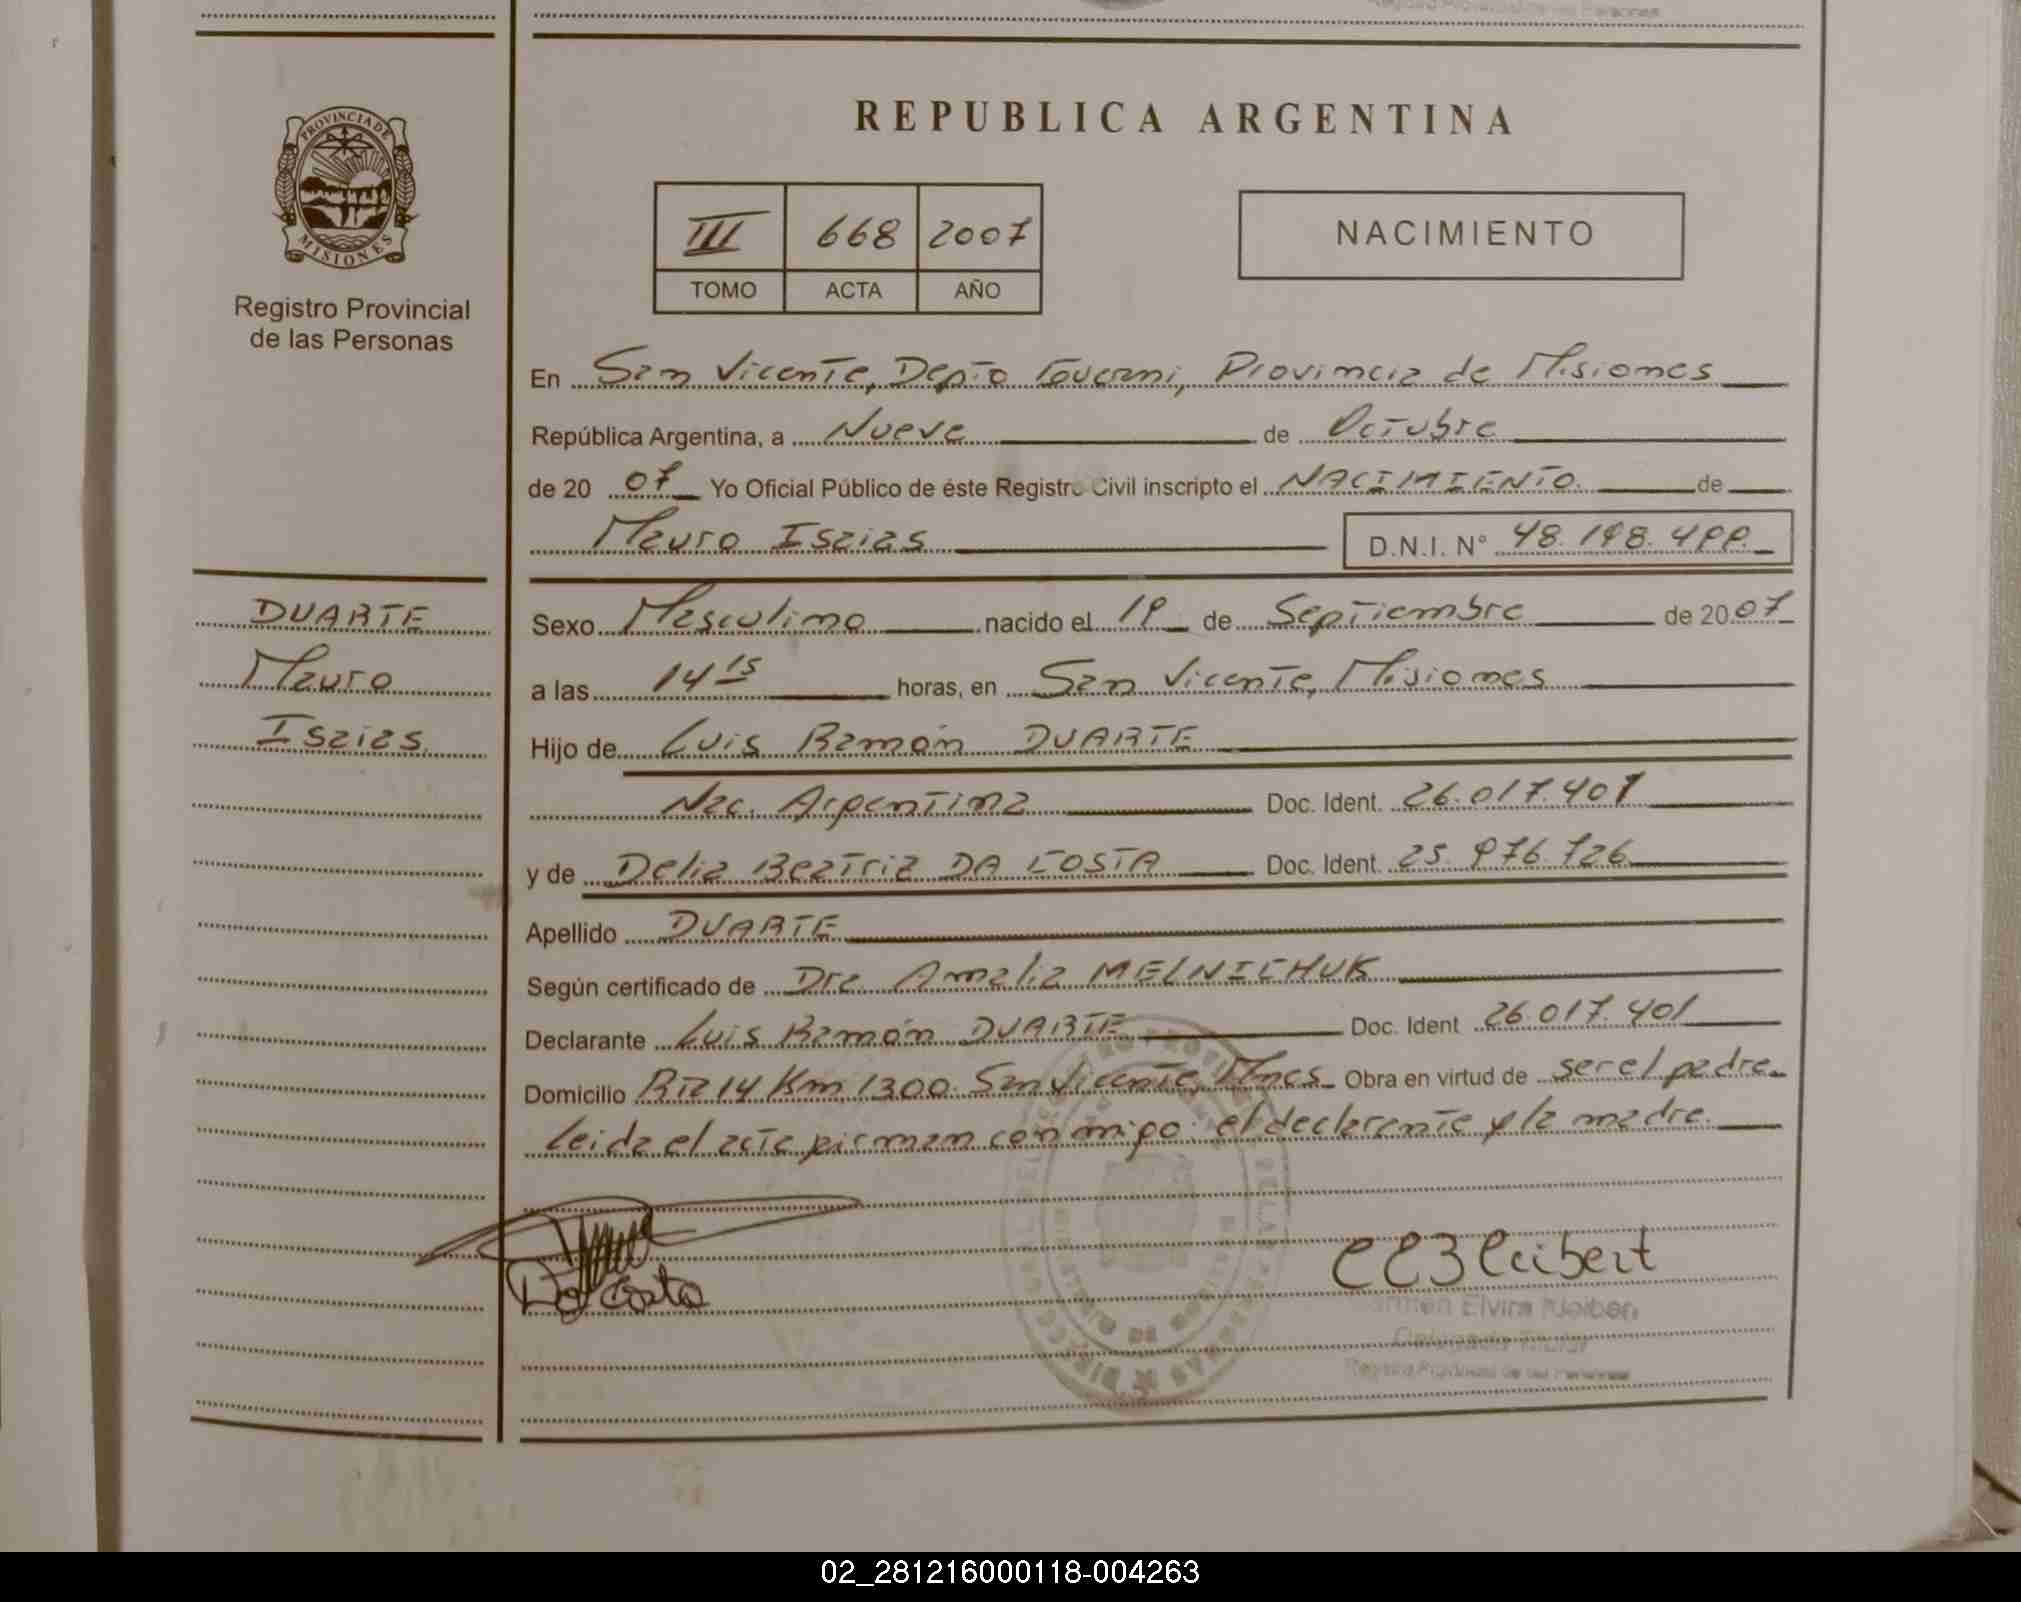 REPUBLICA ARGENTINA
PROVINCIA DE
MISIONES
Registro Provincial
de las Personas
III 668 2007
TOMO ACTA AÑO
NACIMIENTO
En San Vicente, Depto Guaraní, Provincia de Misiones
República Argentina, a Nueve de Octubre
de 20 07 Yo Oficial Público de éste Registro Civil inscripto el NACIMIENTO. de
Mauro Isaias D.N.I. Nº 48.198.499.
DUARTE
Mauro
Isaias
Sexo Masculino nacido el 19 de Septiembre de 2007
a las 14 15 horas, en San Vicente, Misiones
Hijo de Luis Ramón DUARTE
Nac. Argentina Doc. Ident. 26.017.401
y de Delia Beatriz DA COSTA Doc. Ident. 25.976.726
Apellido DUARTE
Según certificado de Dra. Amalia MELNICHUK
Declarante Luis Ramón DUARTE Doc. Ident 26.017.401
Domicilio Rta 14 Km 1300 San Vicente, Mnes Obra en virtud de ser el padre
Leida el acta firman conmigo: el declarante y la madre.
Da Costa
Elvira
Registro Provincial de las Personas
02_281216000118-004263